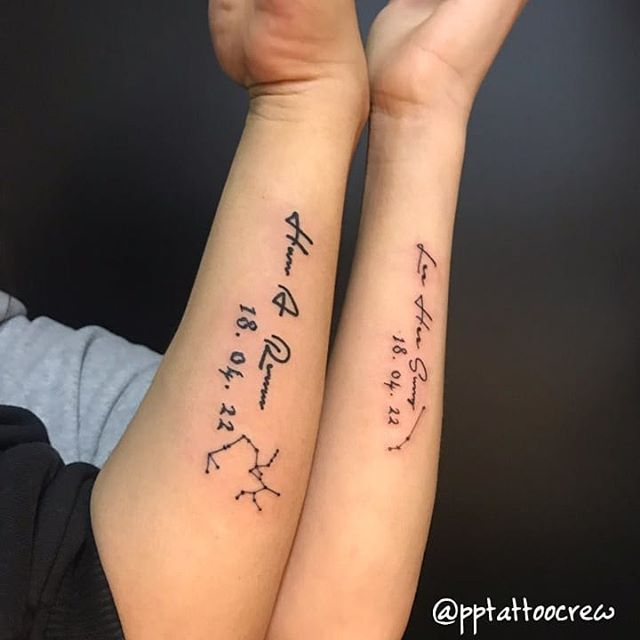 Ham A Reum
18. 04. 22
Lee Hee Sung
18. 04. 22
@pptattoocrew